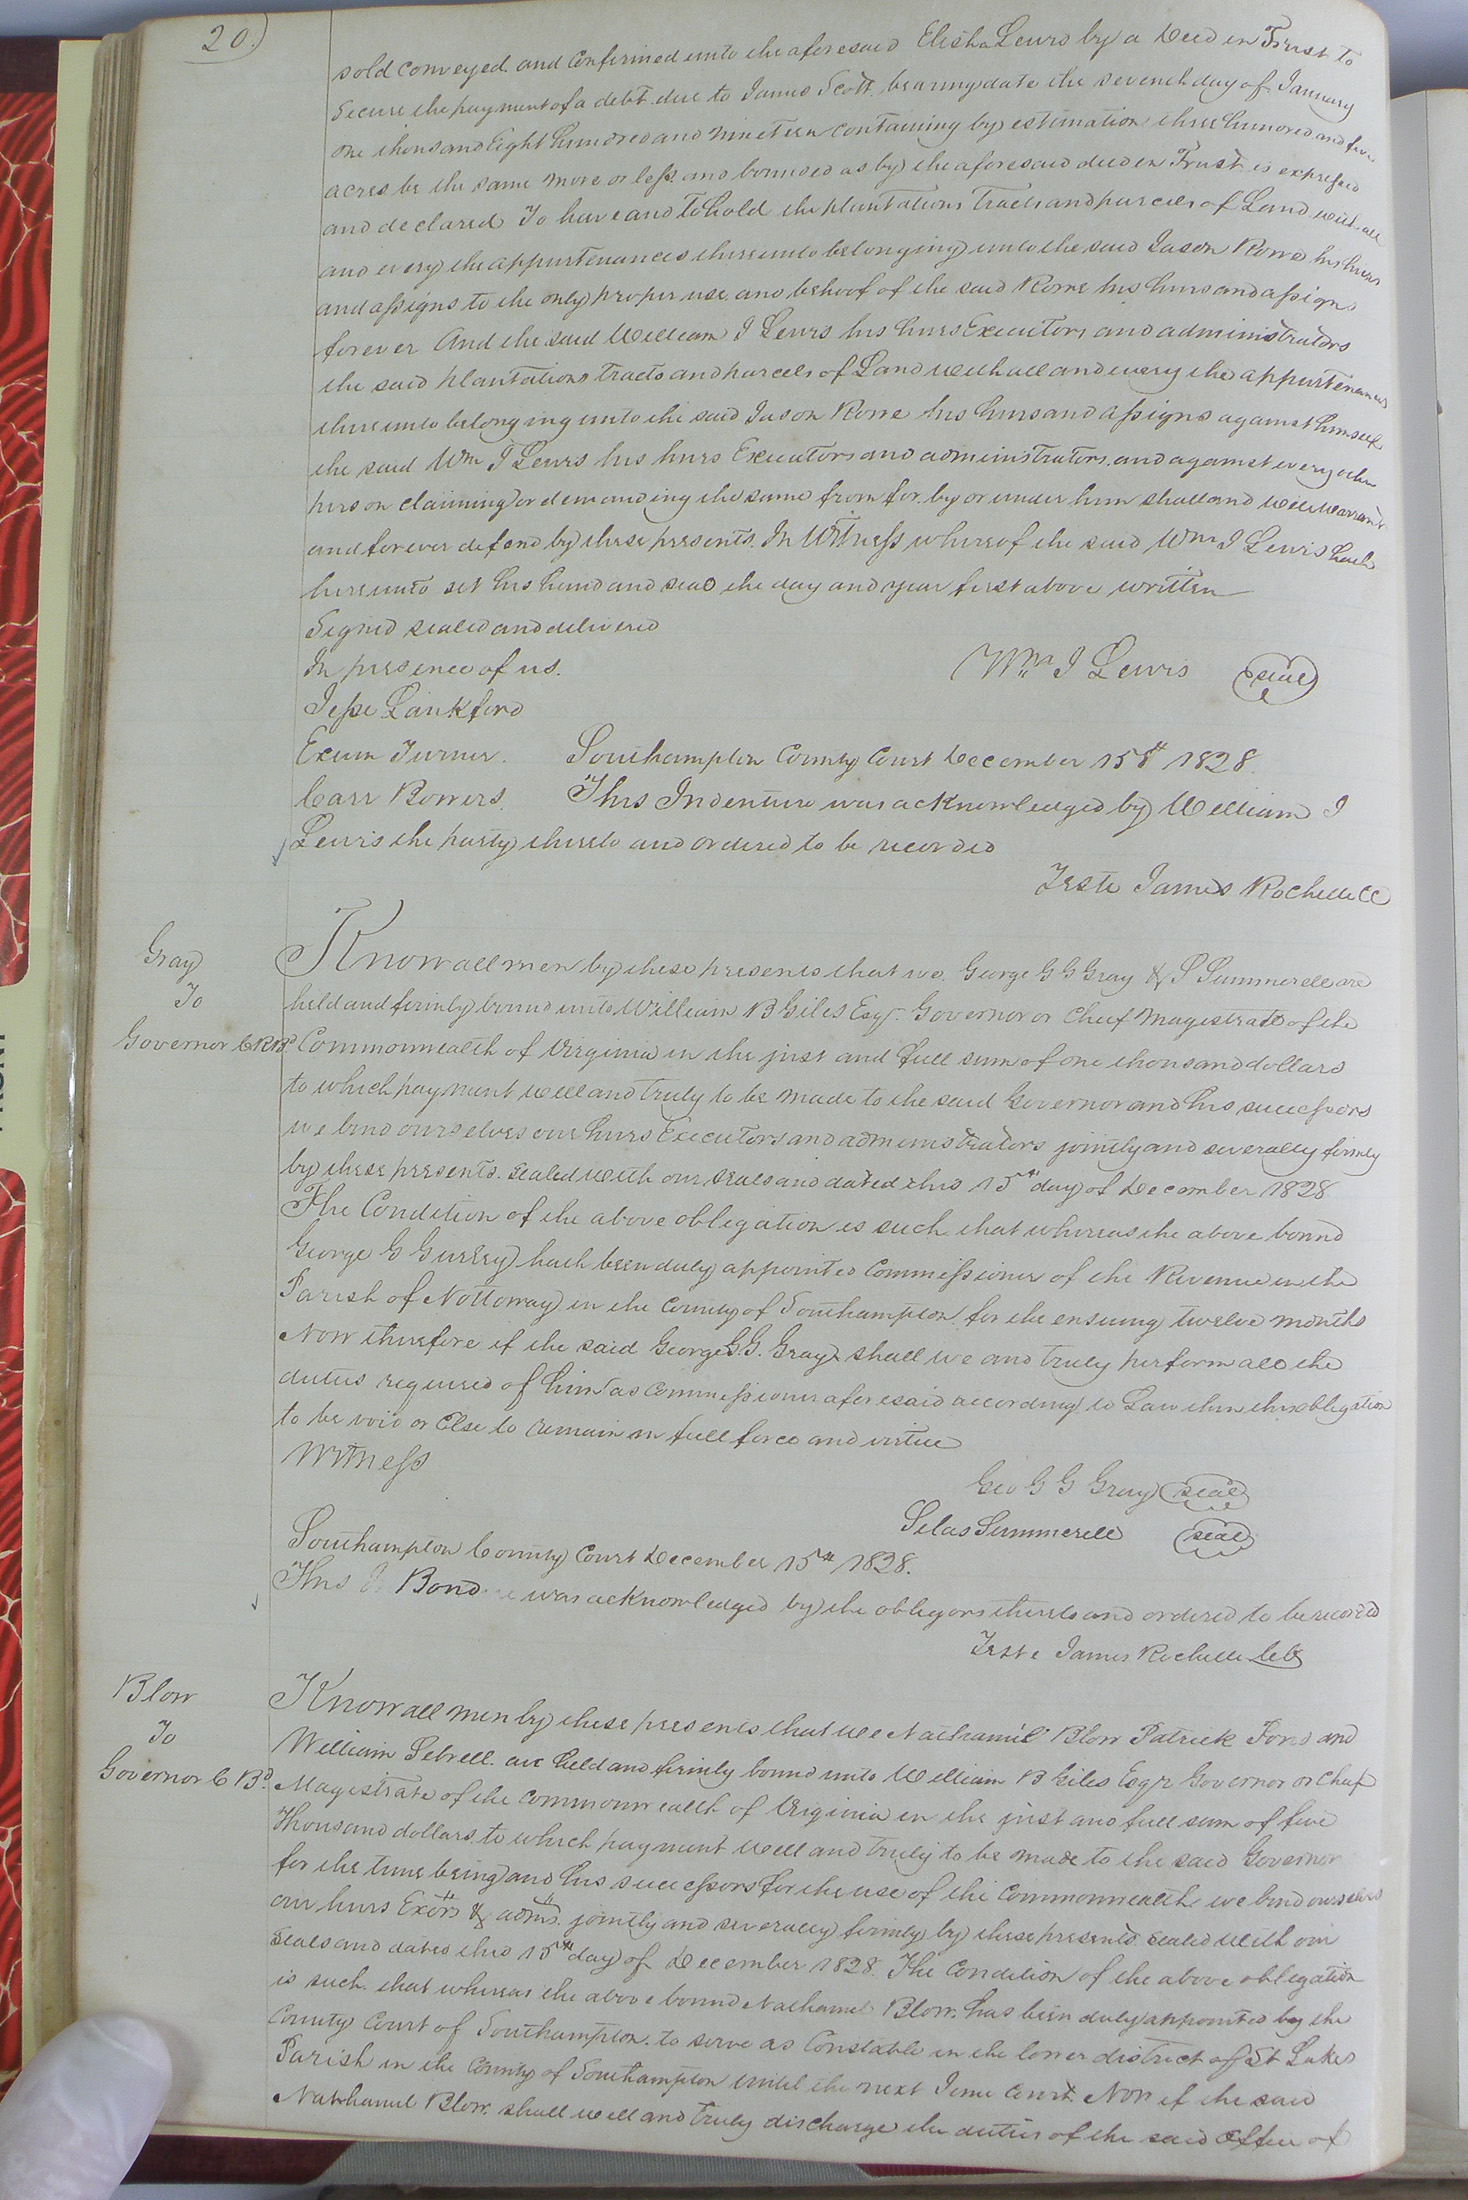 20.)
sold conveyed and Confirmed unto the aforesaid Elisha Lewis by a Deed in Trust to
Secure the payment of a debt due to James Scott bearing date the seventh day of January
one thousand Eight hundred and nineteen containing by estimation three hundred and five
acres be the same more or less and bounded as by the aforesaid deed in Trust is expressed
and declared To have and To hold the plantations Tracts and parcels of Land with all
and every the appurtenances thereunto belonging unto the said Jason Rowe his heirs
and assigns to the only proper use and behoof of the said Rowe his heirs and assigns
forever And the said William J Lewis his heirs Executors and administrators
the said plantations tracts and parcels of Land with all and every the appurtenances
thereunto belonging unto the said Jason Rowe his heirs and assigns against himself
the said Wm J Lewis his heirs Executors and administrators and against every other
person claiming or demanding the same from for by or under him shall and will warrant
and forever defend by these presents. In Witness whereof the said Wm J Lewis hath
hereunto set his hand and seal the day and year first above written
Signed sealed and delivered
In presence of us.
Wm J Lewis (seal)
Jesse Lankford
Exum Turner. Southampton County Court December 15th 1828.
Carr Bowers. This Indenture was acknowledged by William J
Lewis the party thereto and ordered to be recorded
Teste James Rochelle CC
Gray
To
Governor C R Bd
Know all men by these presents that we George G G Gray & S Summerell are
held and firmly bound unto William B Giles Esqr. Governor or Chief Magistrate of the
Commonwealth of Virginia in the just and full sum of one thousand dollars
to which payment well and truly to be made to the said Governor and his successors
we bind ourselves our heirs Executors and administrators jointly and severally firmly
by these presents. sealed with our seals and dated this 15th day of December 1828
The Condition of the above obligation is such that whereas the above bound
George G Gurley hath been duly appointed Commissioner of the Revenue in the
Parish of Nottoway in the County of Southampton for the ensuing twelve months
Now therefore if the said George G.G. Gray shall we and truly perform all the
duties required of him as Commissioner aforesaid according to Law then this obligation
to be void or Else to remain in full force and virtue
Witness
Geo G G Gray (seal)
Silas Summerell (seal)
Southampton County Court December 15th 1828.
This Bond was acknowledged by the obligors thereto and ordered to be recorded
Teste James Rochelle Clk
Blow
To
Governor C Bd
Know all men by these presents that we Nathaniel Blow Patrick Ford and
William Sebrell are held and firmly bound unto William B Giles Esqr Governor or Chief
Magistrate of the commonwealth of Virginia in the just and full sum of five
Thousand dollars to which payment well and truly to be made to the said Governor
for the time being and his successors for the use of the Commonwealth we bind ourselves
our heirs Exors & adms. jointly and severally firmly by these presents. sealed with our
seals and dated this 15th day of December 1828. The Condition of the above obligation
is such that whereas the above bound Nathaniel Blow has been duly appointed by the
County Court of Southampton to serve as Constable in the lower district of St Lukes
Parish in the County of Southampton until the next June Court Now if the said
Nathaniel Blow shall well and truly discharge the duties of the said office of